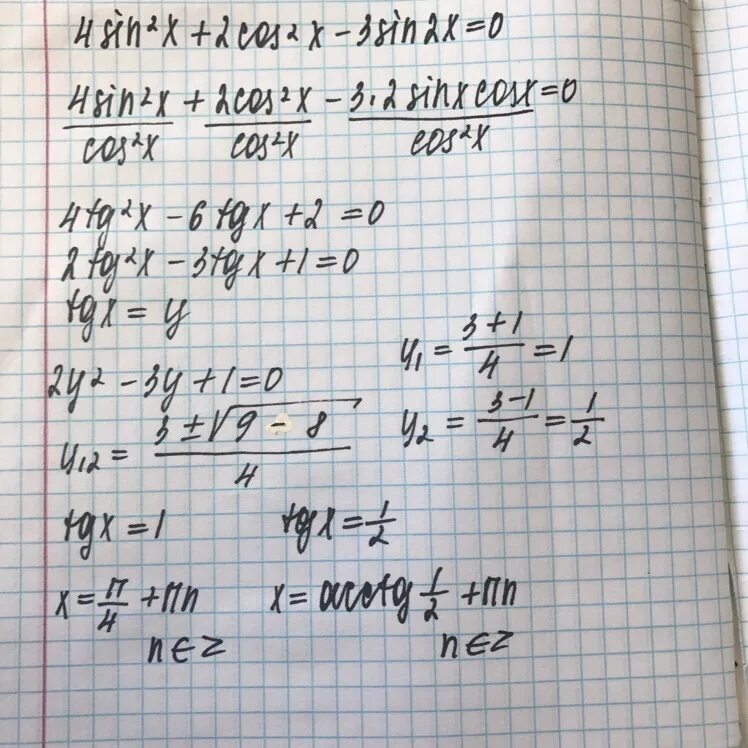 4sin²x + 2cos²x − 3sin2x = 0
4sin²x/cos²x + 2cos²x/cos²x − 3·2sinxcosx/cos²x = 0
4tg²x − 6tgx + 2 = 0
2tg²x − 3tgx + 1 = 0
tgx = y
2y² − 3y + 1 = 0
y₁,₂ = (3 ± √(9 − 8))/4
y₁ = (3+1)/4 = 1
y₂ = (3−1)/4 = 1/2
tgx = 1 tgx = 1/2
x = π/4 + πn x = arctg 1/2 + πn
n∈Z n∈Z